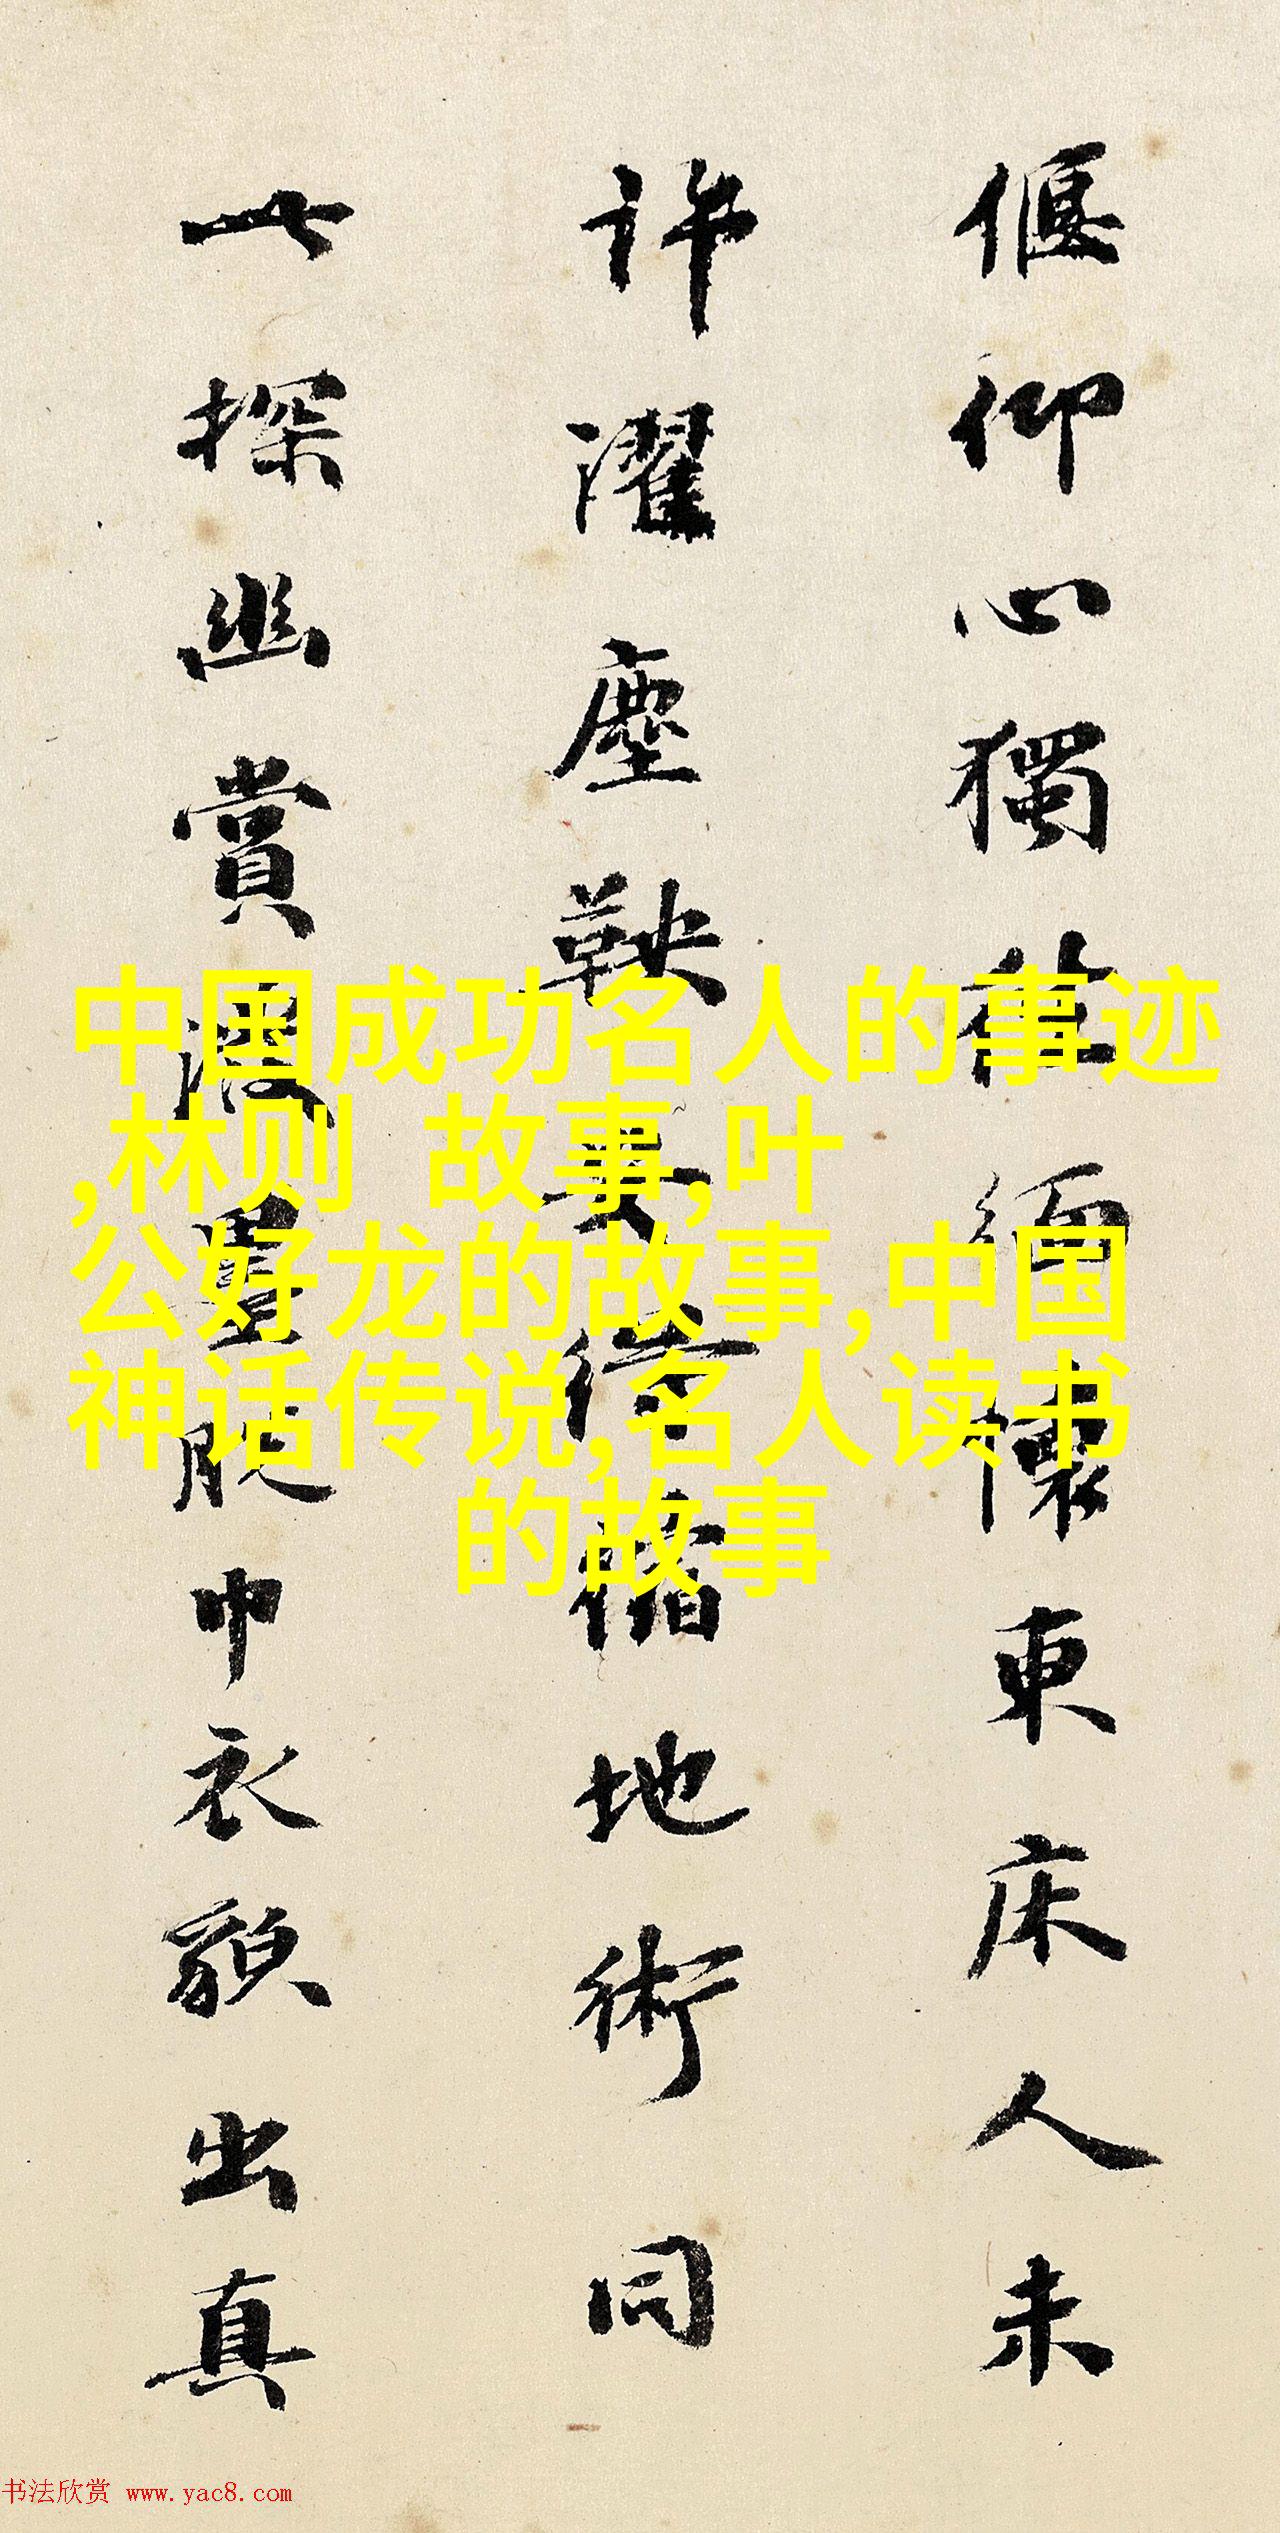 偃仰心獨往緬懷東床人未
许濯塵鞅安得地術同
此探幽賞脱巾衣貌出真
中国成功名人的事迹
,林则 故事,叶
公好龙的故事,中国
神话传说,名人读书
的故事
书法欣赏 www.yac8.com